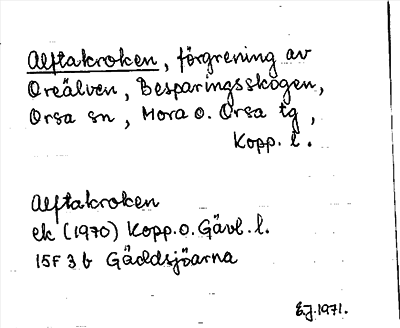 Alftakroken, förgrening av
Oreälven, Besparingsskogen,
Orsa sn, Mora o. Orsa tg,
Kopp. l.
Alftakroken
ek (1970) Kopp. o. Gävl. l.
15F 3 b Gäddsjöarna
E.J. 1971.